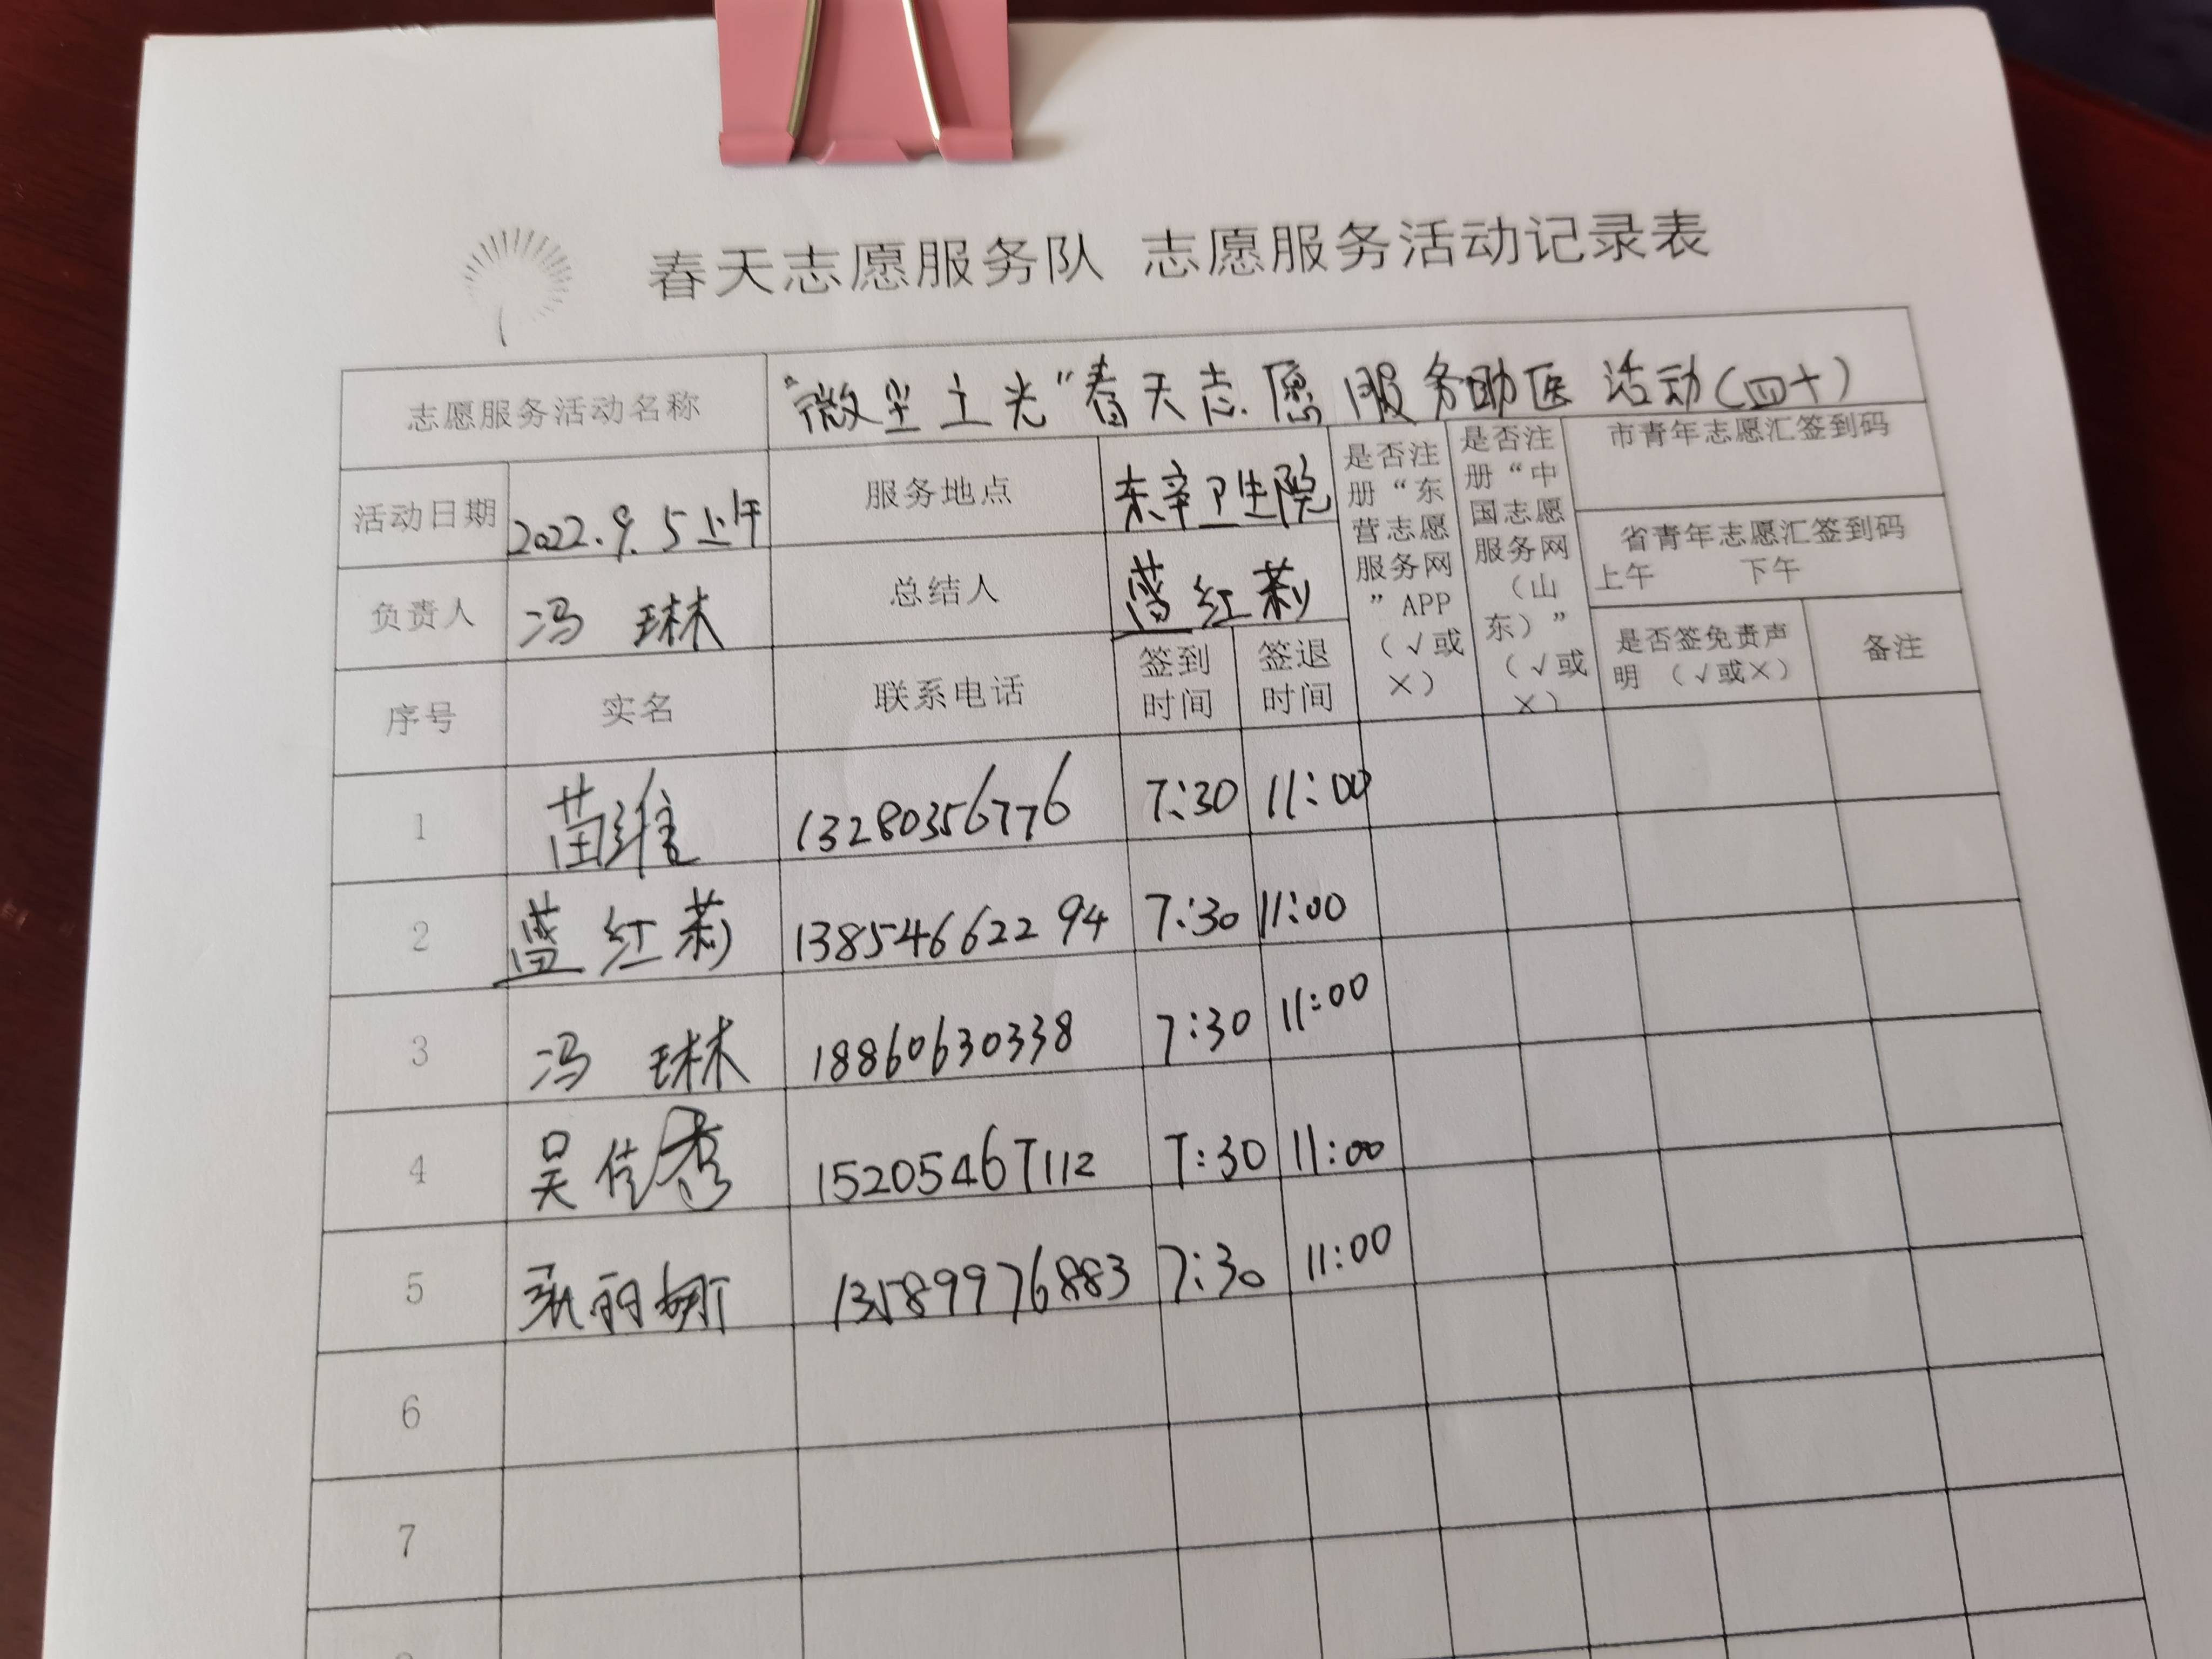 春天志愿服务队 志愿服务活动记录表
志愿服务活动名称 "微尘土光"春天志愿服务助医活动(四十)
活动日期 2022.9.5上午 服务地点 东辛卫生院
负责人 冯琳 总结人 蓝红莉
是否注册“东营志愿服务网”APP（√或×）
是否注册“中国志愿服务网（山东）”（√或×）
市青年志愿汇签到码
省青年志愿汇签到码
上午 下午
是否签免责声明（√或×） 备注
序号 实名 联系电话 签到时间 签退时间
1 苗维 13280356776 7:30 11:00
2 蓝红莉 13854662294 7:30 11:00
3 冯琳 18860630338 7:30 11:00
4 吴佳秀 15205467112 7:30 11:00
5 丽娜 13589976883 7:30 11:00
6
7